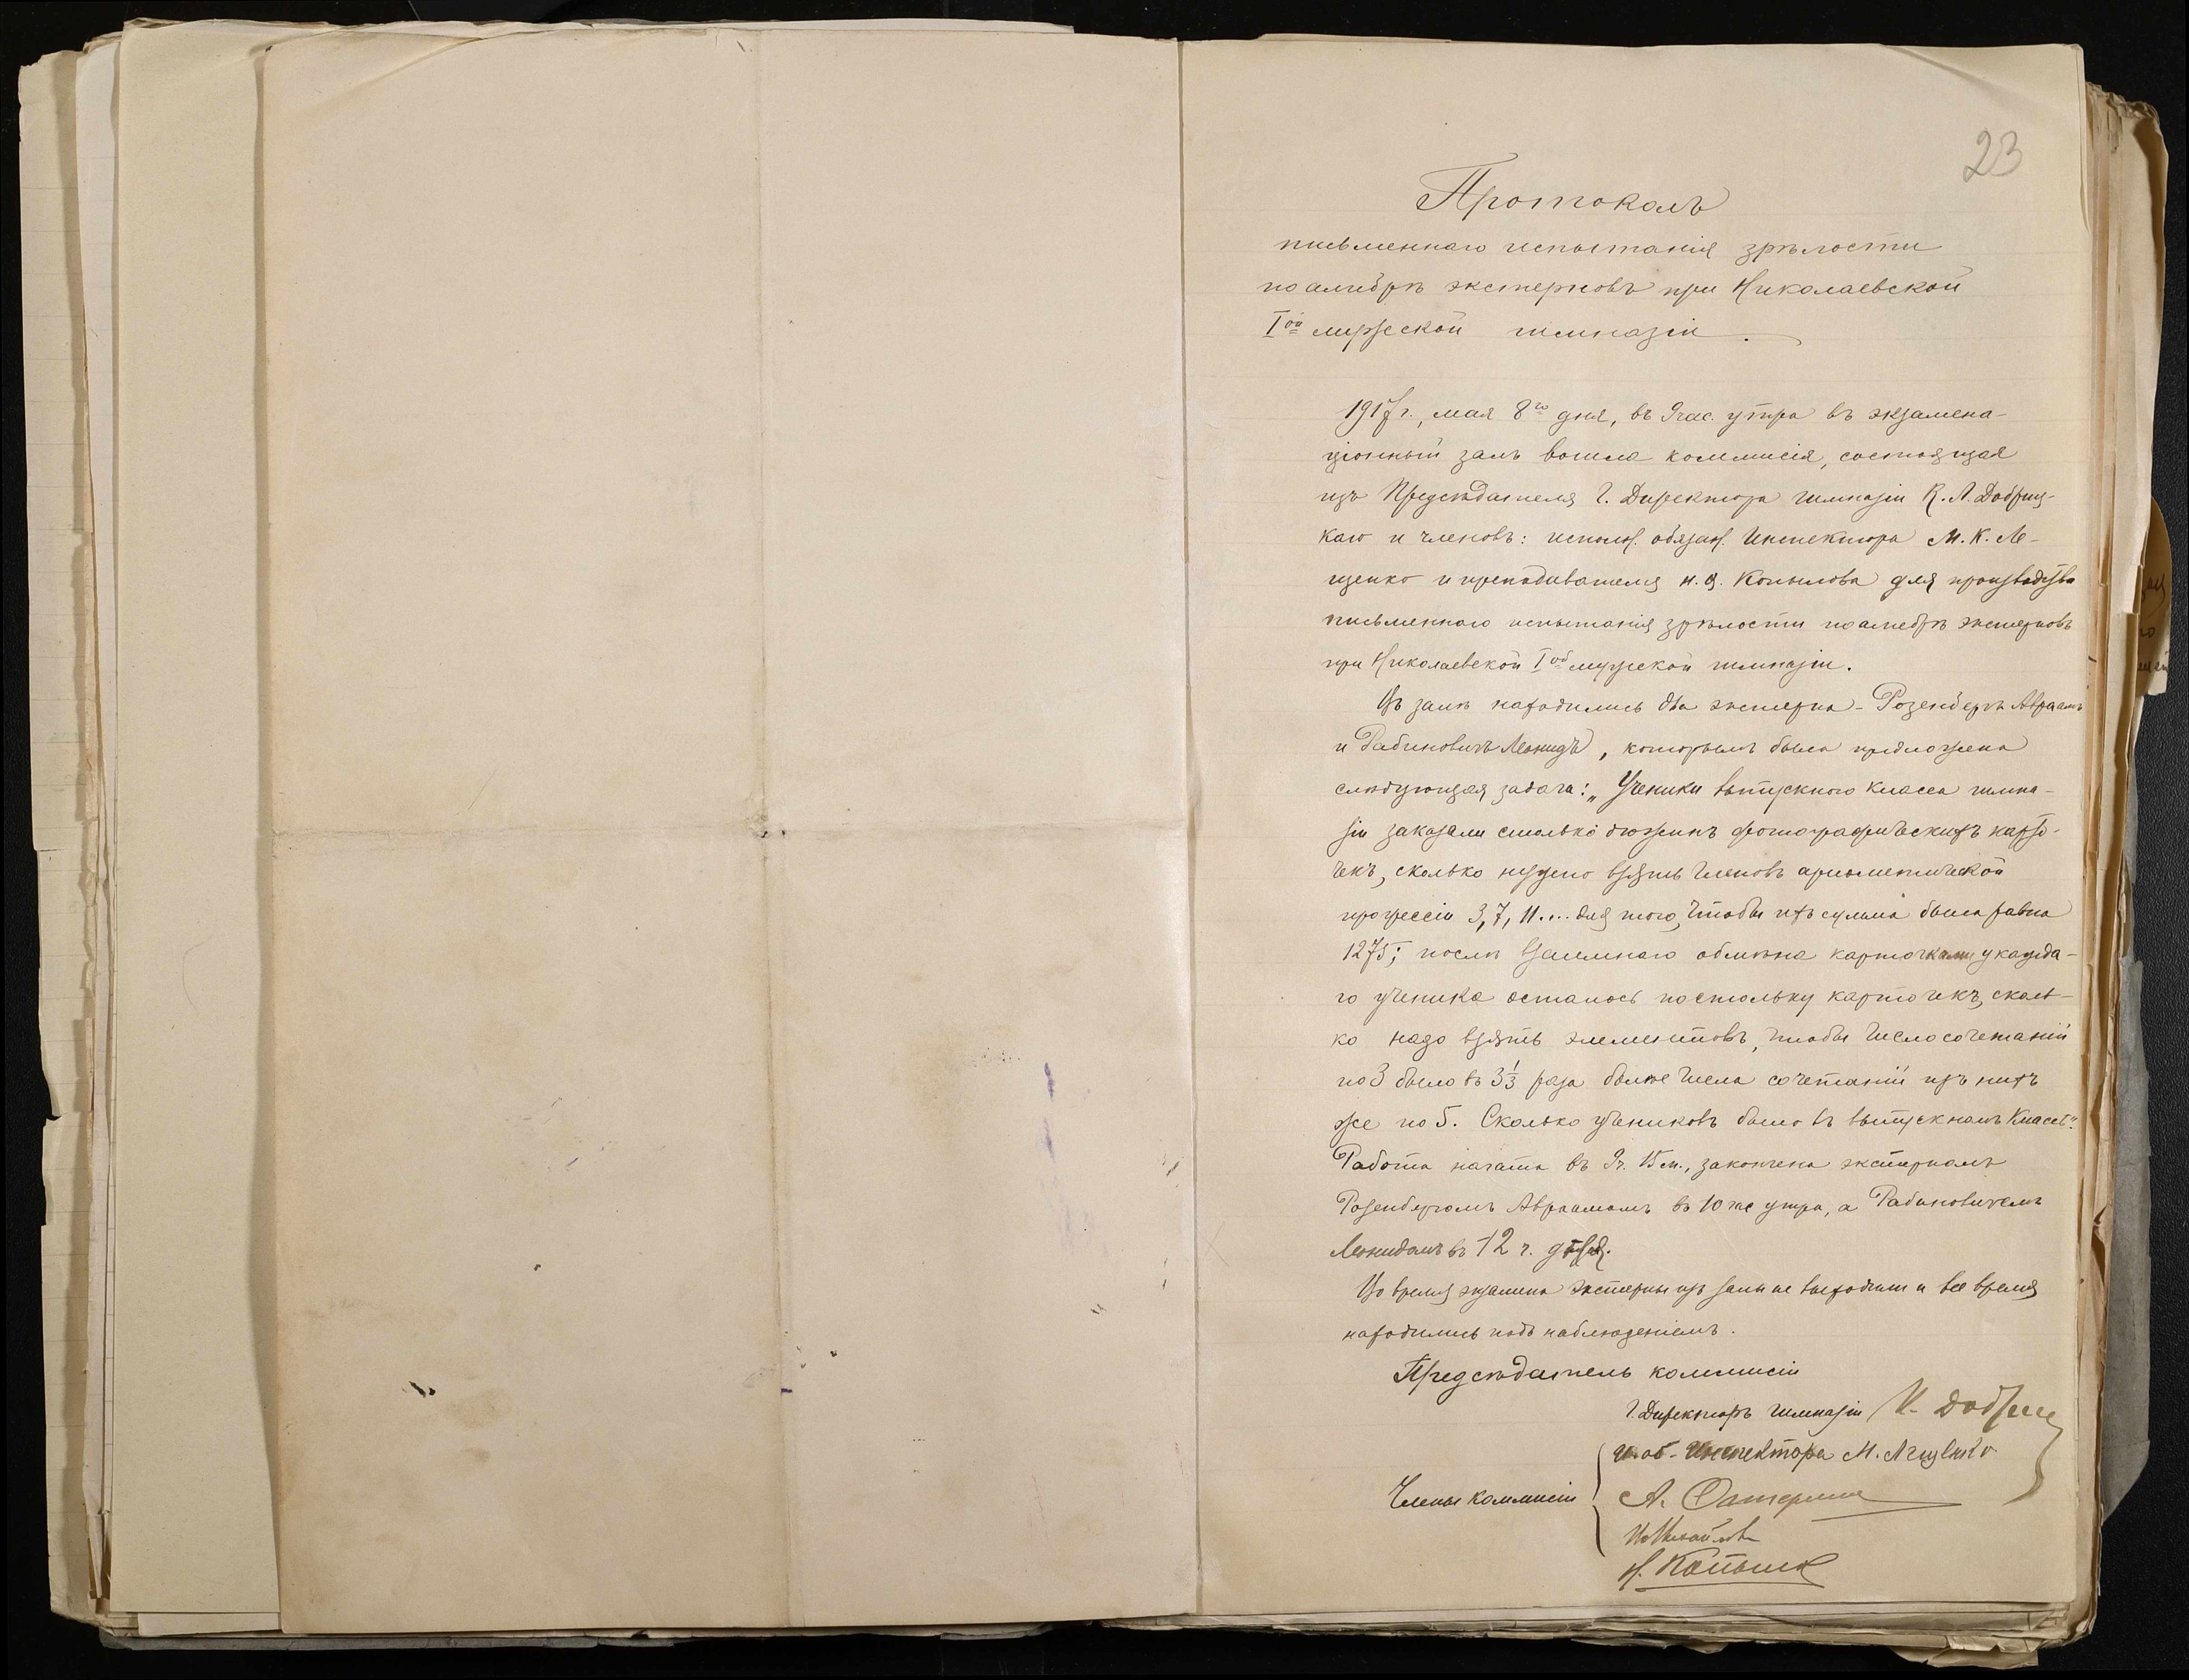 23
Протоколъ
письменнаго испытанія зрѣлости
по алгебрѣ экстерновъ при Николаевской
Iой мужской гимназіи.
1917 г., мая 8го дня, въ 9 час. утра въ экзамена-
ціонный залъ вошла коммисія, состоящая
изъ Предсѣдателя г. Директора гимназіи К. Л. Добриц-
каго и членовъ: исполн. обязан. Инспектора М. К. Ле-
щенко и преподавателя Н. Я. Копылова для производства
письменнаго испытанія зрѣлости по алгебрѣ экстерновъ
при Николаевской Iой мужской гимназіи.
Въ залѣ находились два экстерна - Розенбергъ Авраамъ
и Рабиновичъ Леонидъ, которымъ была предложена
слѣдующая задача: „Ученики выпускного класса гимна-
зіи заказали столько дюжинъ фотографическихъ карто-
чекъ, сколько нужно взять членовъ ариѳметической
прогрессіи 3, 7, 11.... для того, чтобы ихъ сумма была равна
1275; послѣ взаимнаго обмѣна карточками у каждa-
го ученика осталось по стольку карточекъ, сколь-
ко надо взять элементовъ, чтобы число сочетаній
по 3 было въ 3 1/3 раза болѣе числа сочетаній изъ нихъ
же по 5. Сколько учениковъ было въ выпускномъ классѣ".
Работа начата въ 9 ч. 15 м., закончена экстерномъ
Розенбергомъ Авраамомъ въ 10 час утра, а Рабиновичемъ
Леонидомъ въ 12 ч. дня.
Во время экзамена экстерны изъ залы не выходили и все время
находились подъ наблюденіемъ.
Предсѣдатель коммисіи
г. Директоръ гимназіи К. Добриц
Члены коммисіи
и. об. Инспектора М. Лещенко
А.
Н. Копылов